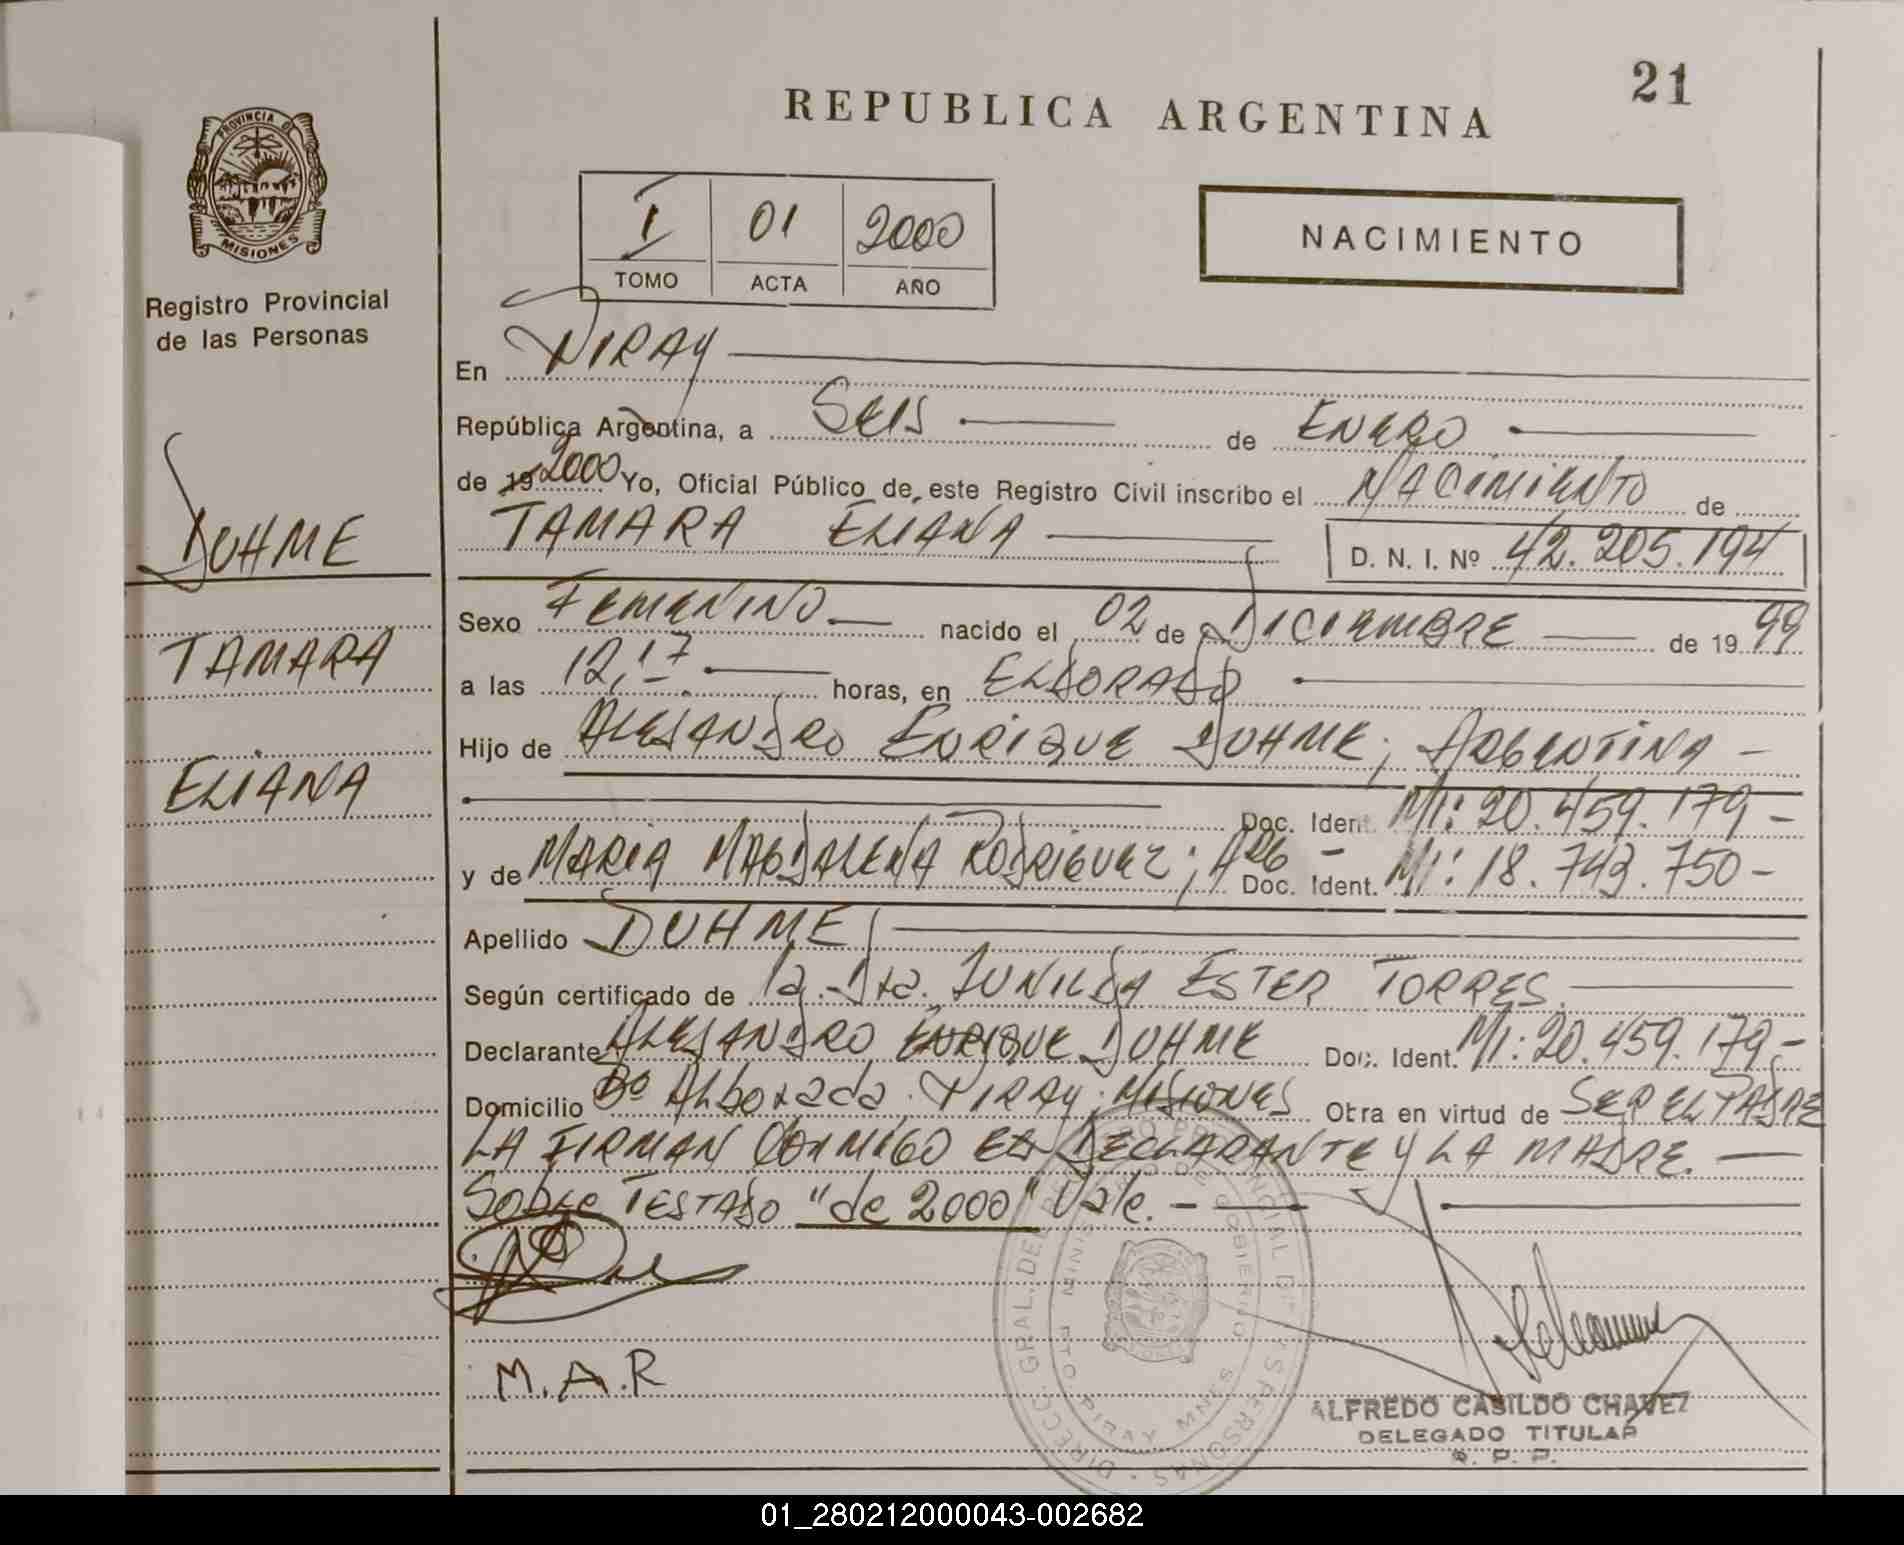 21
REPUBLICA ARGENTINA
PROVINCIA DE
MISIONES
I 01 2000
TOMO ACTA AÑO
NACIMIENTO
Registro Provincial
de las Personas
DUHME
TAMARA
ELIANA
En PIRAY
República Argentina, a SEIS de ENERO
de 19 2000 Yo, Oficial Público de este Registro Civil inscribo el NACIMIENTO de
TAMARA ELIANA D. N. I. Nº 42.205.194
Sexo FEMENINO nacido el 02 de DICIEMBRE de 1999
a las 12,17 horas, en ELDORADO
Hijo de ALEJANDRO ENRIQUE DUHME; ARGENTINA -
Doc. Ident. MI: 20.459.179-
y de MARIA MAGDALENA RODRIGUEZ; ARG - Doc. Ident. MI: 18.743.750-
Apellido DUHME
Según certificado de la Dra. ZUNILDA ESTER TORRES.
Declarante ALEJANDRO ENRIQUE DUHME Doc. Ident. MI: 20.459.179.-
Domicilio Bº Alborada. PIRAY. MISIONES Obra en virtud de SER EL PADRE
LA FIRMAN CONMIGO EL DECLARANTE Y LA MADRE.
Sobre TESTADO "de 2000" Vale. -
M.A.R
ALFREDO CASILDO CHAVEZ
DELEGADO TITULAR
R. P. P.
01_280212000043-002682